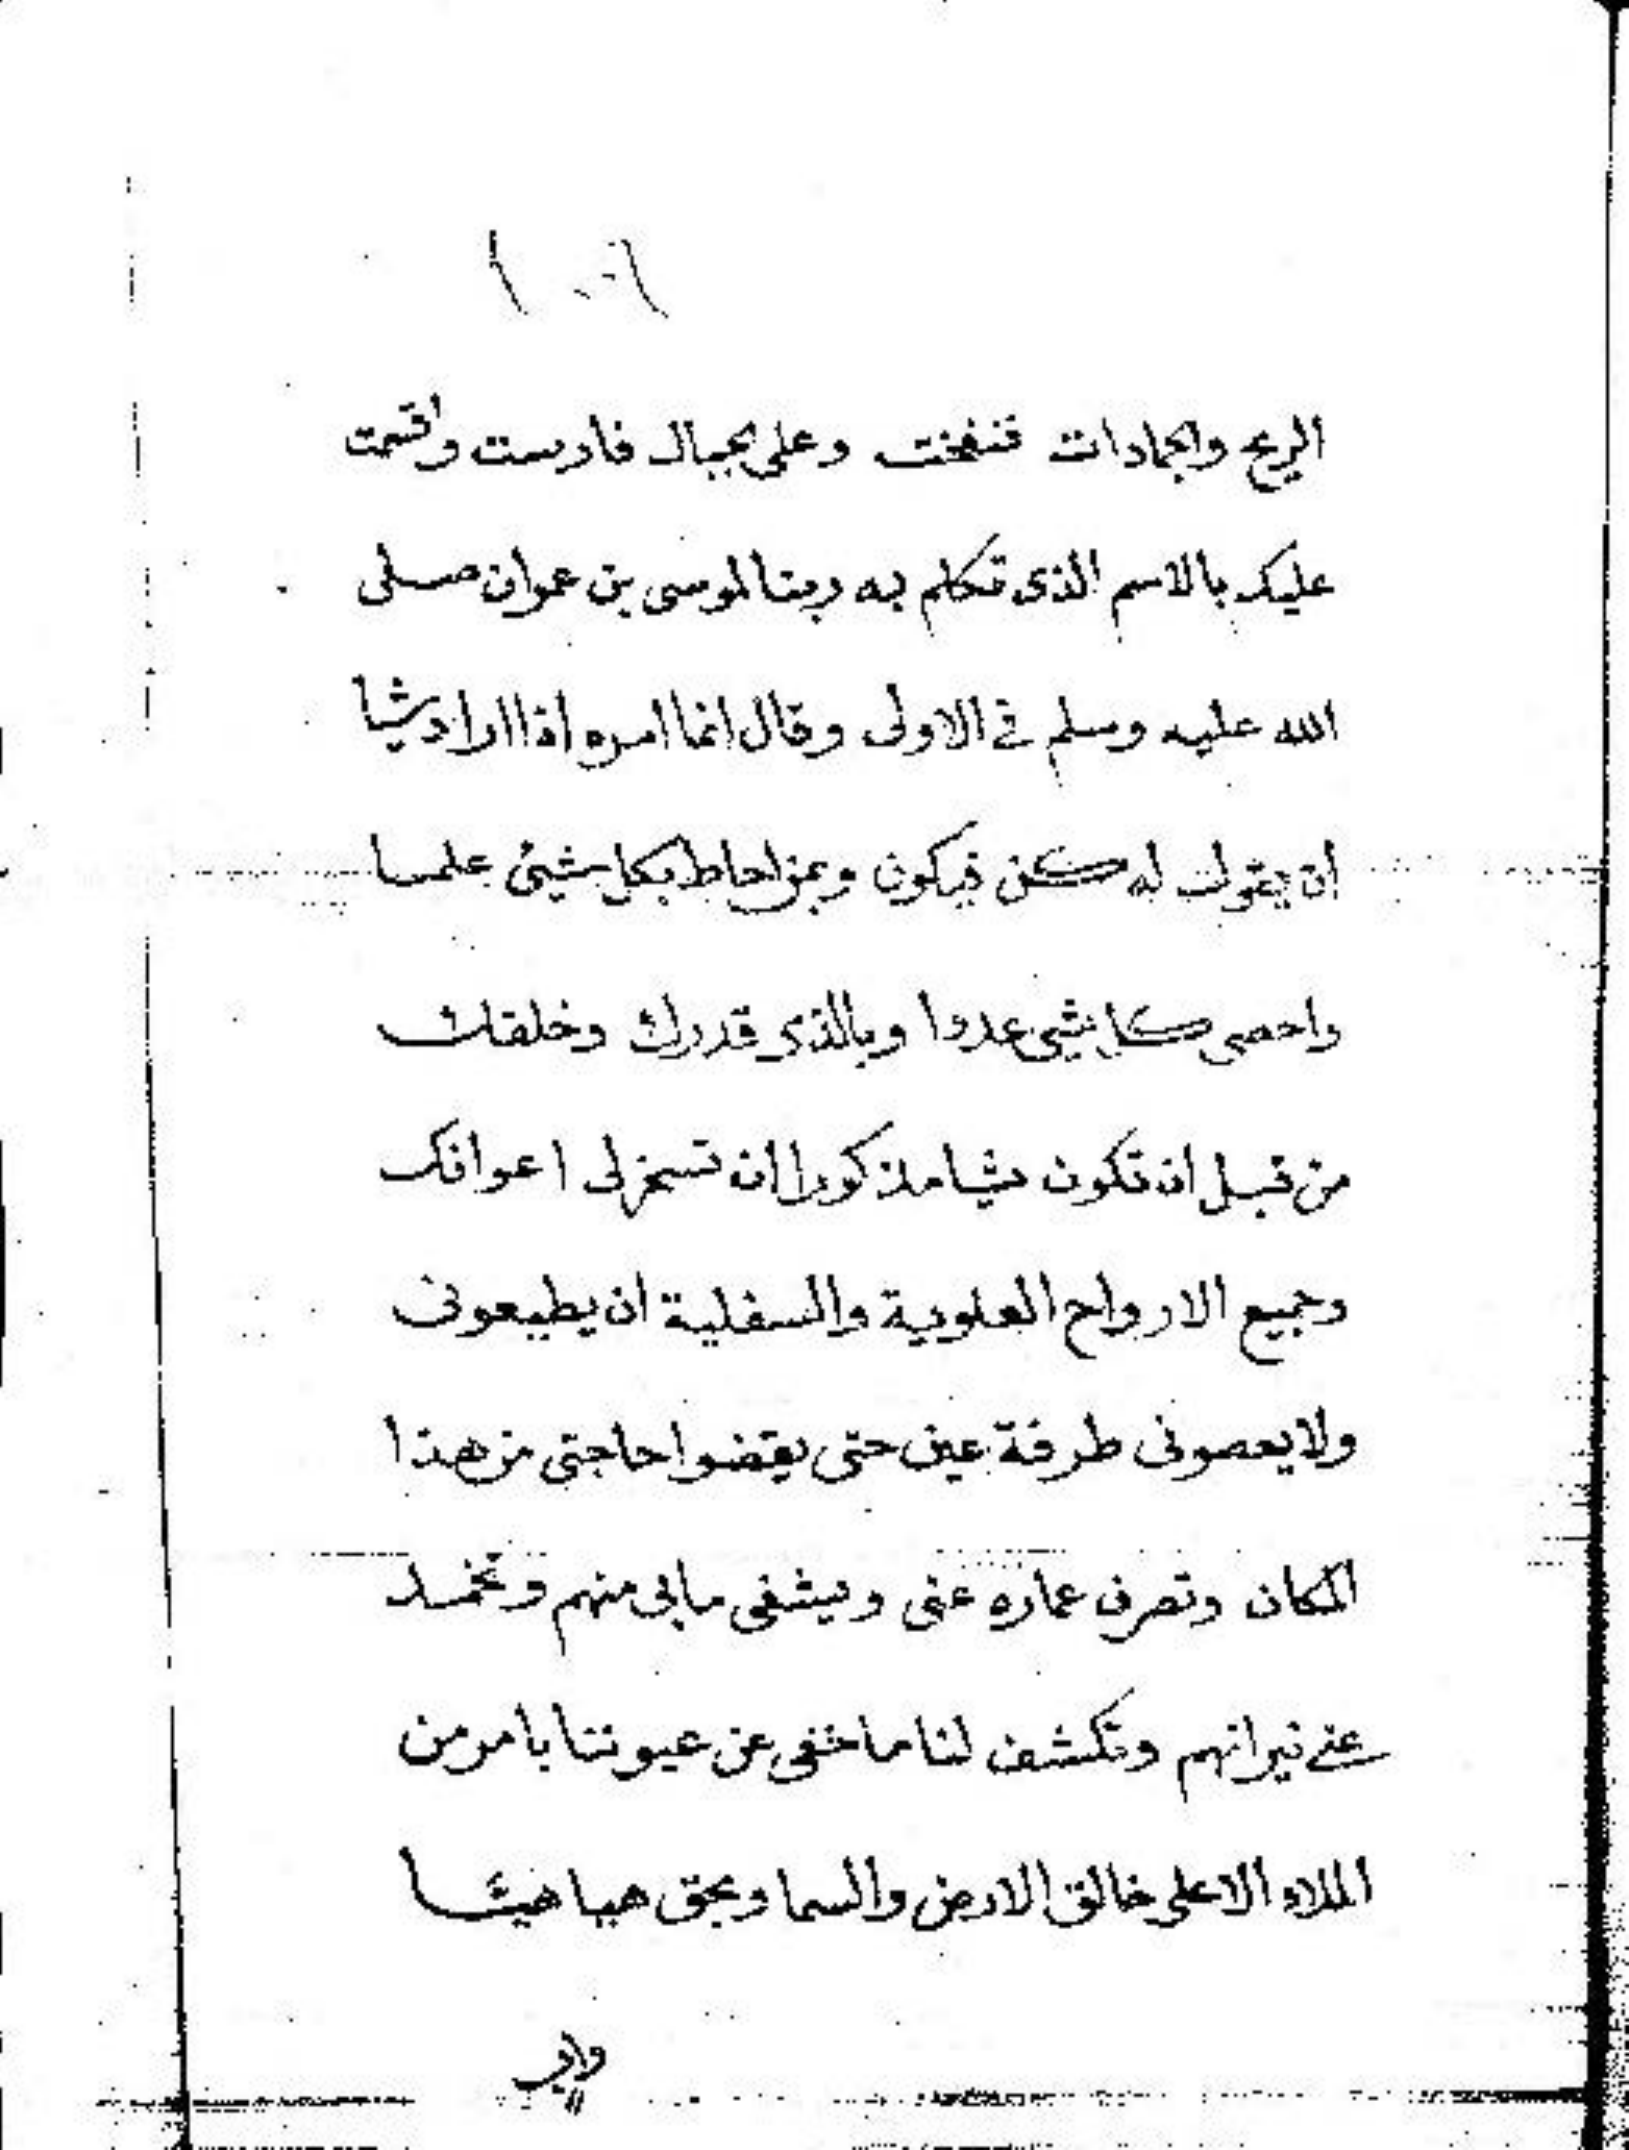 الريح والجمادات فنفخت وعلى الجبال فارست واقسمت
عليك بالاسم الذى تكلم به ربنا لموسى بن عمران صلى
الله عليه وسلم فى الاولى وقال انما امره اذا اراد شيا
ان يقول له كن فيكون وبمن احاط بكل شيئ علما
واحصى كل شيئ عددا وبالذى قدرك وخلقك
من قبل ان تكون شيا مذكورا ان تسخر لى اعوانك
وجميع الارواح العلوية والسفلية ان يطيعونى
ولا يعصونى طرفة عين حتى يقضوا حاجتى من هذا
المكان وتصرف عماره عنى ويشفى مابى منهم وتخمد
عنى نيرانهم وتكشف لنا ما خفى عن عيوننا بامر من
الملاء الاعلى خالق الارض والسما وبحق هيا هيا